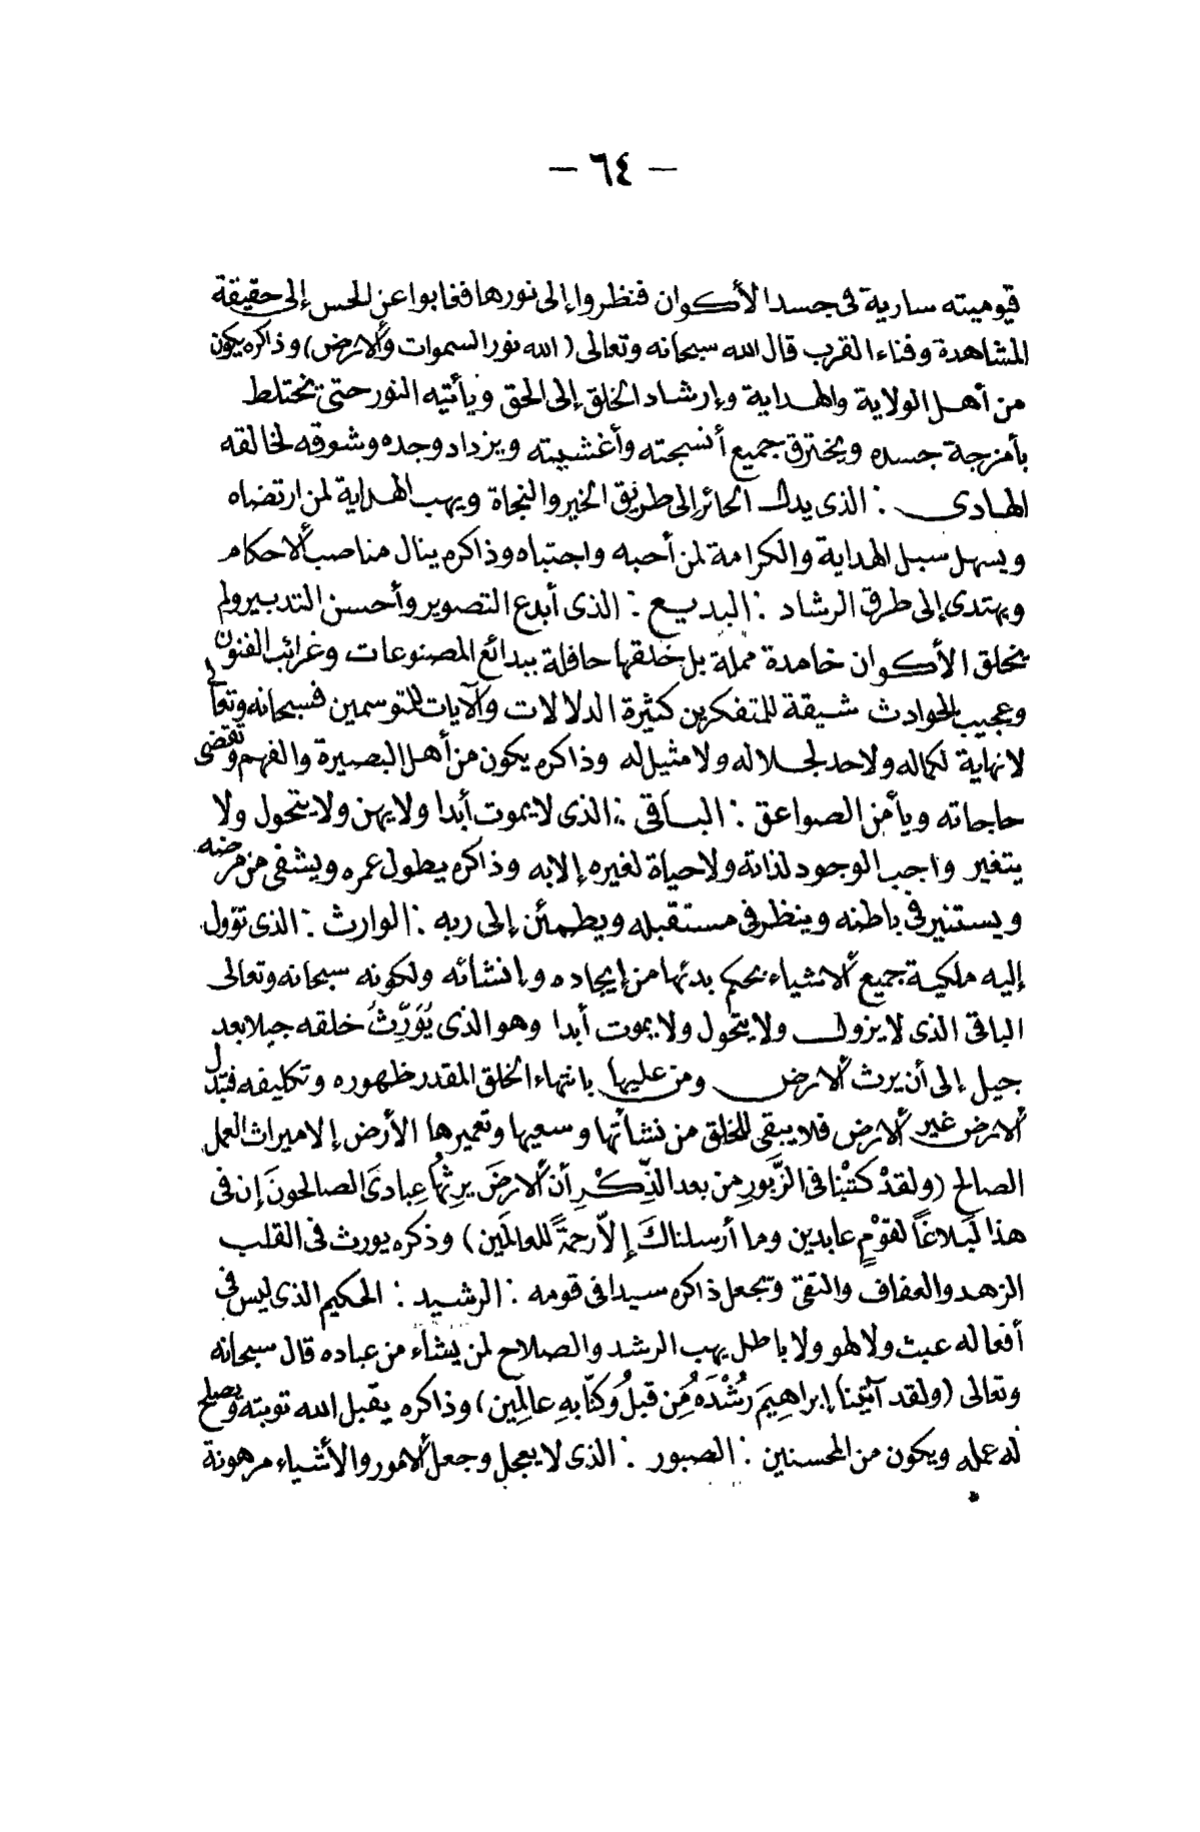 — ٦٤ —
قيوميته سارية فى جسد الأكوان فنظروا إلى نورها فغابوا عن الحس إلى حقيقة
المشاهدة وفناء القرب قال الله سبحانه وتعالى (الله نور السموات والأرض) وذاكره يكون
من أهل الولاية والهداية وإرشاد الخلق إلى الحق ويأتيه النور حتى يختلط
بأمزجة جسده ويخترق جميع أنسجته وأغشيته ويزداد وجده وشوقه لخالقه
الهادى : الذى يدل الحائر إلى طريق الخير والنجاة ويهب الهداية لمن ارتضاه
ويسهل سبل الهداية والكرامة لمن أحبه واجتباه وذاكره ينال مناصب الأحكام
ويهتدى إلى طرق الرشاد : البديع : الذى أبدع التصوير وأحسن التدبير ولم
يخلق الأكوان خامدة مملة بل خلقها حافلة ببدائع المصنوعات وغرائب الفنون
وعجيب الحوادث شيقة للمتفكرين كثيرة الدلالات والآيات للمتوسمين فسبحانه وتعالى
لا نهاية لكماله ولا حد لجلاله ولا مثيل له وذاكره يكون من أهل البصيرة والفهم وتقضى
حاجاته ويأمن الصواعق : الباقى : الذى لا يموت أبدا ولا يهن ولا يتحول ولا
يتغير واجب الوجود لذاته ولا حياة لغيره إلا به وذاكره يطول عمره ويشفى من مرضه
ويستنير فى باطنه وينظر فى مستقبله ويطمئن إلى ربه : الوارث : الذى تؤول
إليه ملكية جميع الأشياء بحكم بدئها من إيجاده وإنشائه ولكونه سبحانه وتعالى
الباقى الذى لا يزول ولا يتحول ولا يموت أبدا وهو الذى يُوَرِّثُ خلقه جيلا بعد
جيل إلى أن يرث الأرض ومن عليها بانتهاء الخلق المقدر ظهوره وتكليفه فتبدل
الأرض غير الأرض فلا يبقى للخلق من نشأتها وسعيها وتعميرها الأرض إلا ميراث العمل
الصالح (ولقدْ كتبْنا فى الزَّبورِ من بعد الذِّكْرِ أن الأرضَ يرِثُها عِبادىَ الصالحونَ إن فى
هذا لَبلاغًا لقوْمٍ عابدين وما أرسلناكَ إلاّ رحمةً للعالمَين) وذكره يورث فى القلب
الزهد والعفاف والتقى ويجعل ذاكره سيدا فى قومه : الرشيد : الحكيم الذى ليس فى
أفعاله عبث ولا لهو ولا باطل يهب الرشد والصلاح لمن يشاء من عباده قال سبحانه
وتعالى (ولقد آتينا إبراهِيمَ رُشْدَهُ مِن قبلُ وَكنّا بهِ عالِمين) وذاكره يقبل الله توبته ويصلح
له عمله ويكون من المحسنين : الصبور : الذى لا يعجل وجعل الأمور والأشياء مرهونة